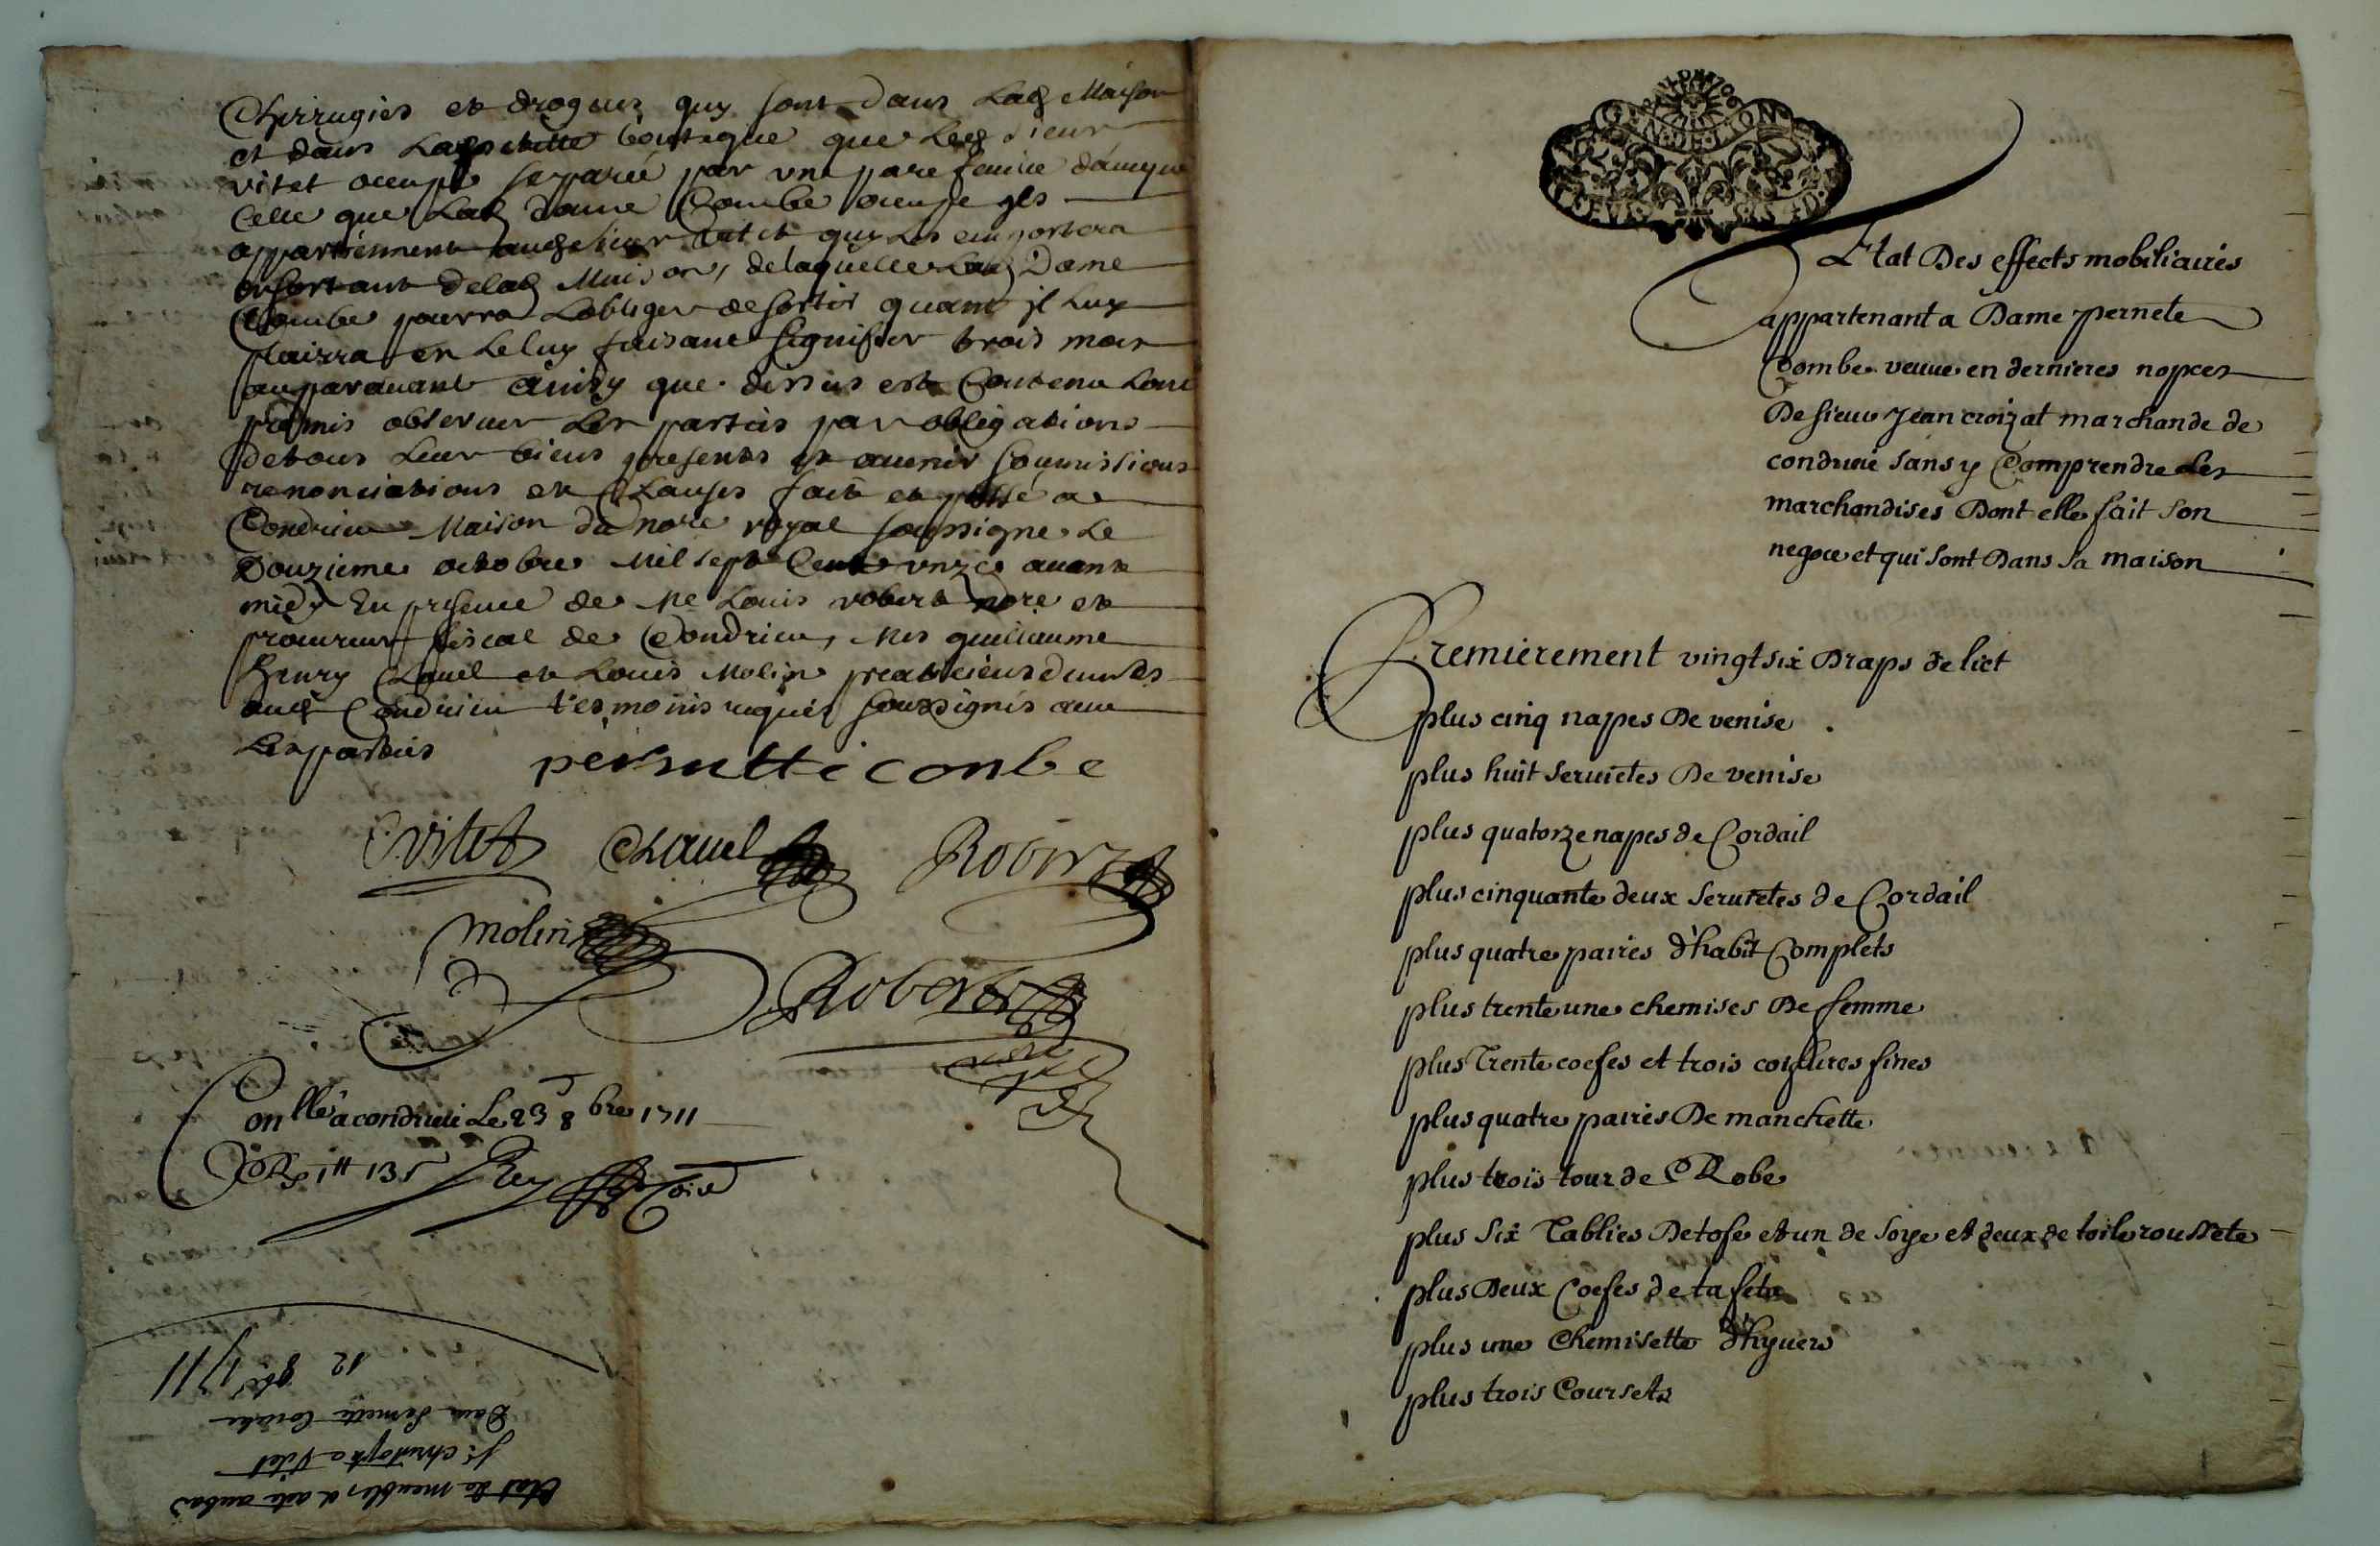 Chirrugies et drogues quy sont dans lad Maison
et dans lad petitte boutique que led sieur
vitet occupe separée par une parefeuille d'avque
Celle que lad dame Combe occupe yls
appartiennent aud sieur vitet quy les emportera
en sortant de lad Maison, de laquelle lad Dame
Combe pourra l'obliger de sortir quand jl luy
plairra en le luy faisant signiffier trois mois
auparavant ainsy que dessus est Contenu l'ont
promis observer les parties par obligations
de tous leur biens presents et avenir soumissions
renonciations et Clauses fait et passé a
Condrieu Maison du nore royal soussigne le
Douzieme octobre Mil sept Cent unze avant
midy En presence de Me Louis robert nore et
procureur fiscal de Condrieu, Mes guillaume
henry Chavel et Louis Molin praticiens dumts
aud Condrieu tesmoins requis soussignés avec
les parties
pernette conbe
C vitet Chavel Robert
molin
Robert
Conllé a condrieu Le 23 8bre 1711
R 1tt 13s Rey
12 8bre 1711
Dame Pernette Combe
Sr Christophe Vitet
Etat de meubles et acte au bas
GEN DE LYON
Etat Des effects mobiliaires
appartenant a Dame pernete
Combe veuve en dernieres nopces
De sieur Jean croizat marchande de
condrieu sans y Comprendre les
marchandises Dont elle fait son
negoce et qui sont Dans sa maison
Premierement vingt six Draps de lict
plus cinq napes De venise
plus huit serviettes De venise
plus quatorze napes de Cordail
plus cinquante deux servietes de Cordail
plus quatre paires d'habit Complets
plus trente une chemises De femme
plus Trente coefes et trois coiffures fines
plus quatre paires De manchette
plus trois tour de Robe
plus six Tablies Detofe et un de soye et deux de toile roussete
plus Deux Coefes de tafeta
plus une Chemisette d'hyuers
plus trois Coursets